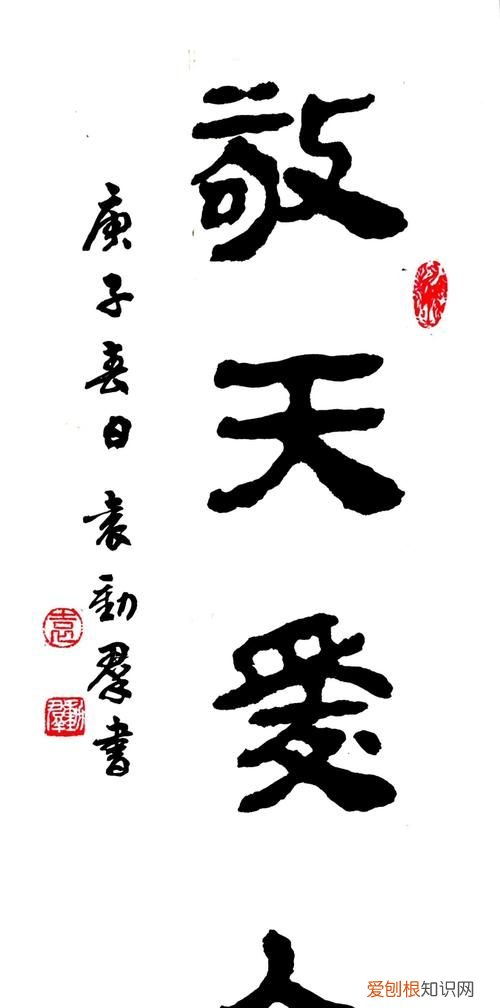 敬天愛人
庚子春日 袁群書
袁
爱刨根知识网